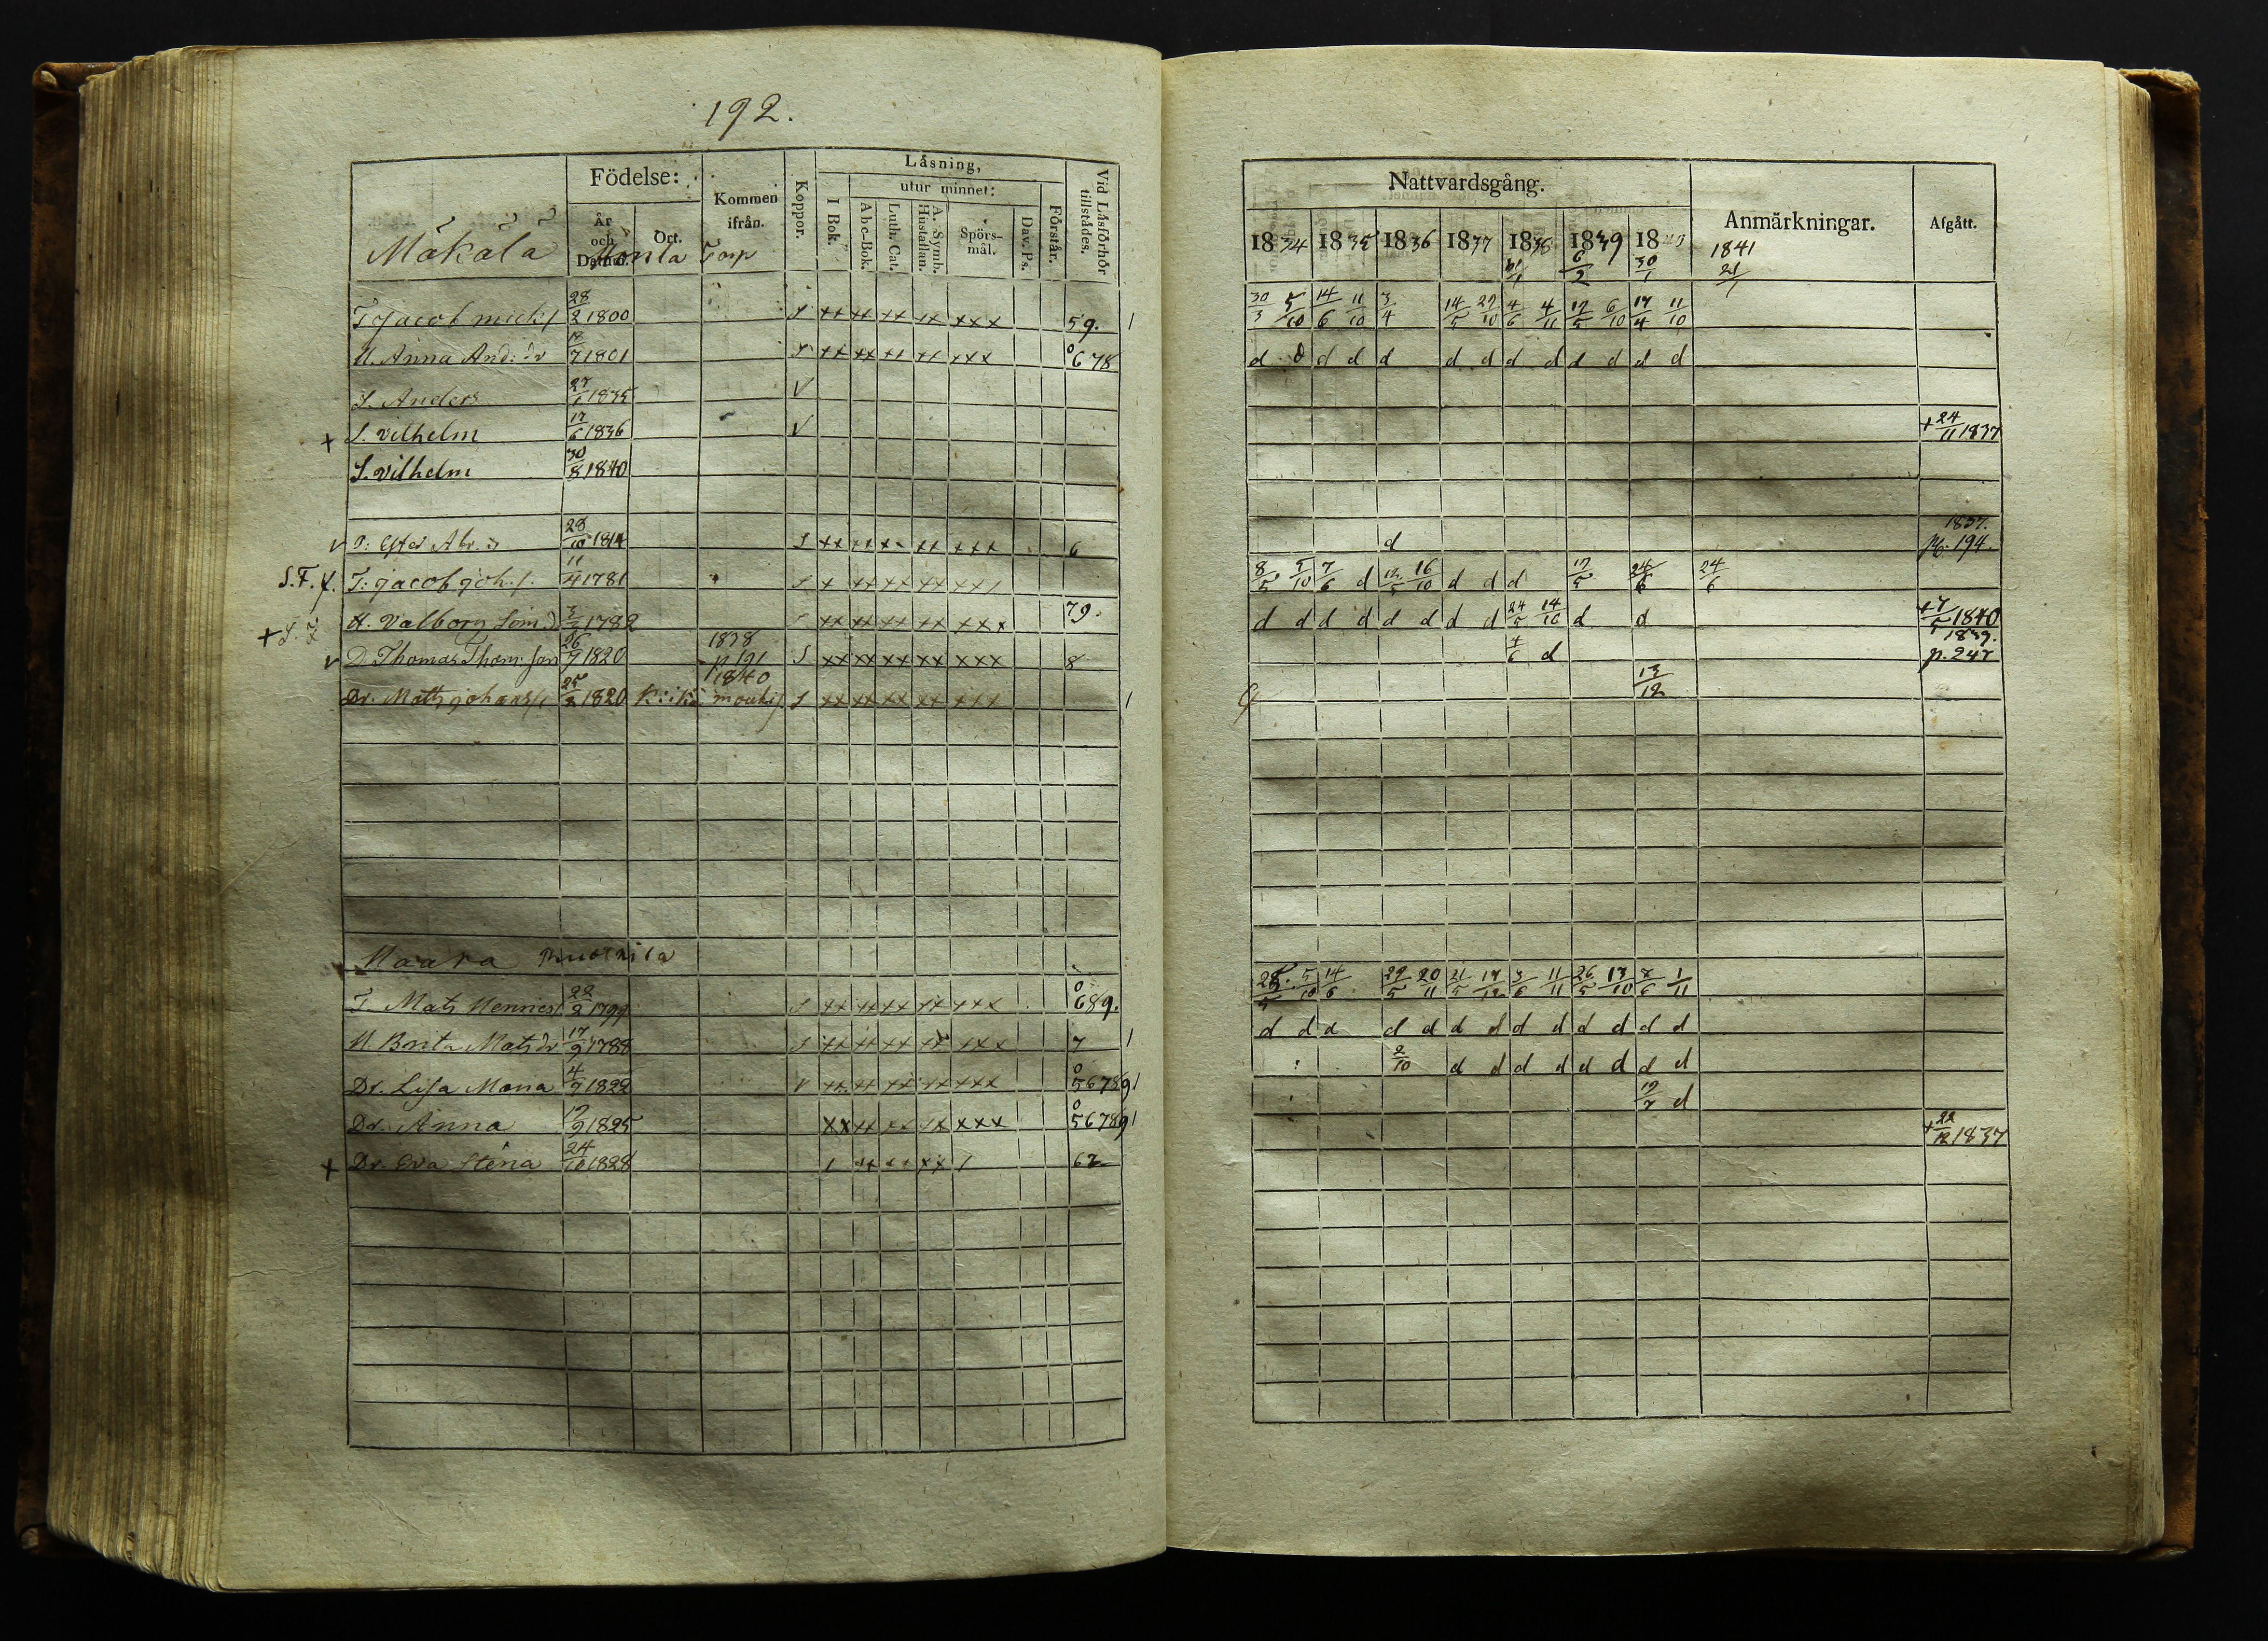 192.
Födelse:
Läsning,
utur minnet:
År och Datum.
Ort.
Kommen ifrån.
Koppor.
I Bok.
Abc-Bok.
Luth. Cat.
A. Symb. Hustaflan.
Spörsmål.
Dav. Ps.
Förstår.
Vid Läsförhör tillstädes.
Mäkälä Torp
T Jacob mick/ 28/2 1800 S xx xx xx xx xxx 59. 1
H. Anna And: dr /7 1801 S xx xx xx xx xxx 0 678
S. Anders 27/1 1835 V
+ S. Vilhelm 17/6 1836 V
S. Vilhelm 30/8 1840
v Abr. 28/10 1814 S xx xx xx xx xxx 6
S.F. T: Jacob Joh./. 11/4 1781 x xx xx xx xx/
+ H. Valborg Sim. 1782 xx xx xx xx xxx 79.
v D Thomas Thom: son 26/7 1820 1838 p 191 S xx xx xx xx xxx 8
Dr. Matts johans/ 25/2 1820 1840 S xx xx xx xx xxx 1
Maara
T. Mats Henrics/ 22/2 1799 S xx xx xx xx xxx 0 689.
H. Brita Mats dr 17/9 1788 S xx xx xx xx xxx 7 1
Dr. Lisa Maria 4/9 1822 V xx xx xx xx xxx 0 56789 1
Dr. Anna 19/9 1825 xx xx xx xx xxx 0 56789 1
+ Dr. Eva Stina 24/10 1828 / xx xx xx / 67
Nattvardsgång.
Anmärkningar.
Afgått.
1834 1835 1836 1837 1838 1839 1840 1841
6/2 30/1 21/1
30/3 5/10 14/6 11/10 3/4 14/5 29/10 4/6 4/11 12/5 6/10 17/4 11/10
d d d d d d d d d d d d d
+ 24/11 1837
d 1837. p. 194.
8/5 5/10 7/6 d 12/5 16/10 d d d 12/5 24/6 24/6
d d d d d d d d 24/5 14/10 d d + 7/5 1840
4/6 d 1839. p. 247
13/12
25/5 5/10 14/6 29/5 20/11 21/5 17/12 3/6 11/11 26/5 13/10 7/6 1/11
d d d d d d d d d d d d d
2/10 d d d d d d d d
19/7 d
+ 22/12 1837